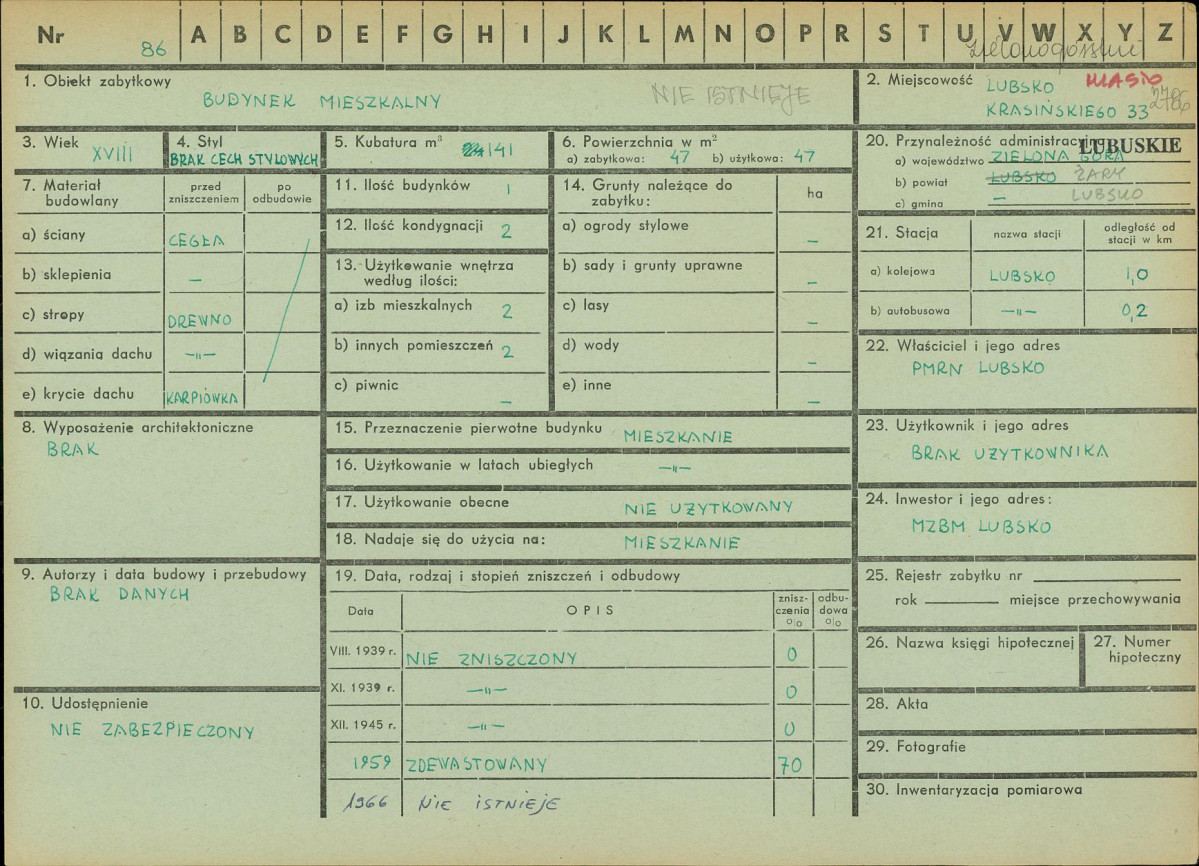 Nr 86 A B C D E F G H I J K L M N O P R S T U V W X Y Z
zielonogórskie
1. Obiekt zabytkowy
BUDYNEK MIESZKALNY NIE ISTNIEJE
2. Miejscowość LUBSKO MIASTO
KRASIŃSKIEGO 33
3. Wiek XVIII
4. Styl
BRAK CECH STYLOWYCH
5. Kubatura m³ 141
6. Powierzchnia w m²
a) zabytkowa: 47 b) użytkowa: 47
20. Przynależność administracyjna
LUBUSKIE
a) województwo ZIELONA GÓRA
b) powiat LUBSKO ŻARY
c) gmina — LUBSKO
7. Materiał budowlany
przed zniszczeniem
po odbudowie
a) ściany CEGŁA
b) sklepienia —
c) stropy DREWNO
d) wiązania dachu —„—
e) krycie dachu KARPIÓWKA
11. Ilość budynków 1
12. Ilość kondygnacji 2
13. Użytkowanie wnętrza
według ilości:
a) izb mieszkalnych 2
b) innych pomieszczeń 2
c) piwnic —
14. Grunty należące do
zabytku:
ha
a) ogrody stylowe —
b) sady i grunty uprawne —
c) lasy —
d) wody —
e) inne —
21. Stacja
nazwa stacji
odległość od
stacji w km
a) kolejowa LUBSKO 1,0
b) autobusowa —„— 0,2
22. Właściciel i jego adres
PMRN LUBSKO
8. Wyposażenie architektoniczne
BRAK
15. Przeznaczenie pierwotne budynku MIESZKANIE
16. Użytkowanie w latach ubiegłych —„—
17. Użytkowanie obecne NIE UŻYTKOWANY
18. Nadaje się do użycia na: MIESZKANIE
23. Użytkownik i jego adres
BRAK UŻYTKOWNIKA
24. Inwestor i jego adres:
MZBM LUBSKO
9. Autorzy i data budowy i przebudowy
BRAK DANYCH
19. Data, rodzaj i stopień zniszczeń i odbudowy
Data
OPIS
znisz-
czenia
%
odbu-
dowa
%
VIII. 1939 r. NIE ZNISZCZONY 0
XI. 1939 r. —„— 0
XII. 1945 r. —„— 0
1959 ZDEWASTOWANY 70
1966 NIE ISTNIEJE
25. Rejestr zabytku nr
rok miejsce przechowywania
26. Nazwa księgi hipotecznej
27. Numer
hipoteczny
10. Udostępnienie
NIE ZABEZPIECZONY
28. Akta
29. Fotografie
30. Inwentaryzacja pomiarowa